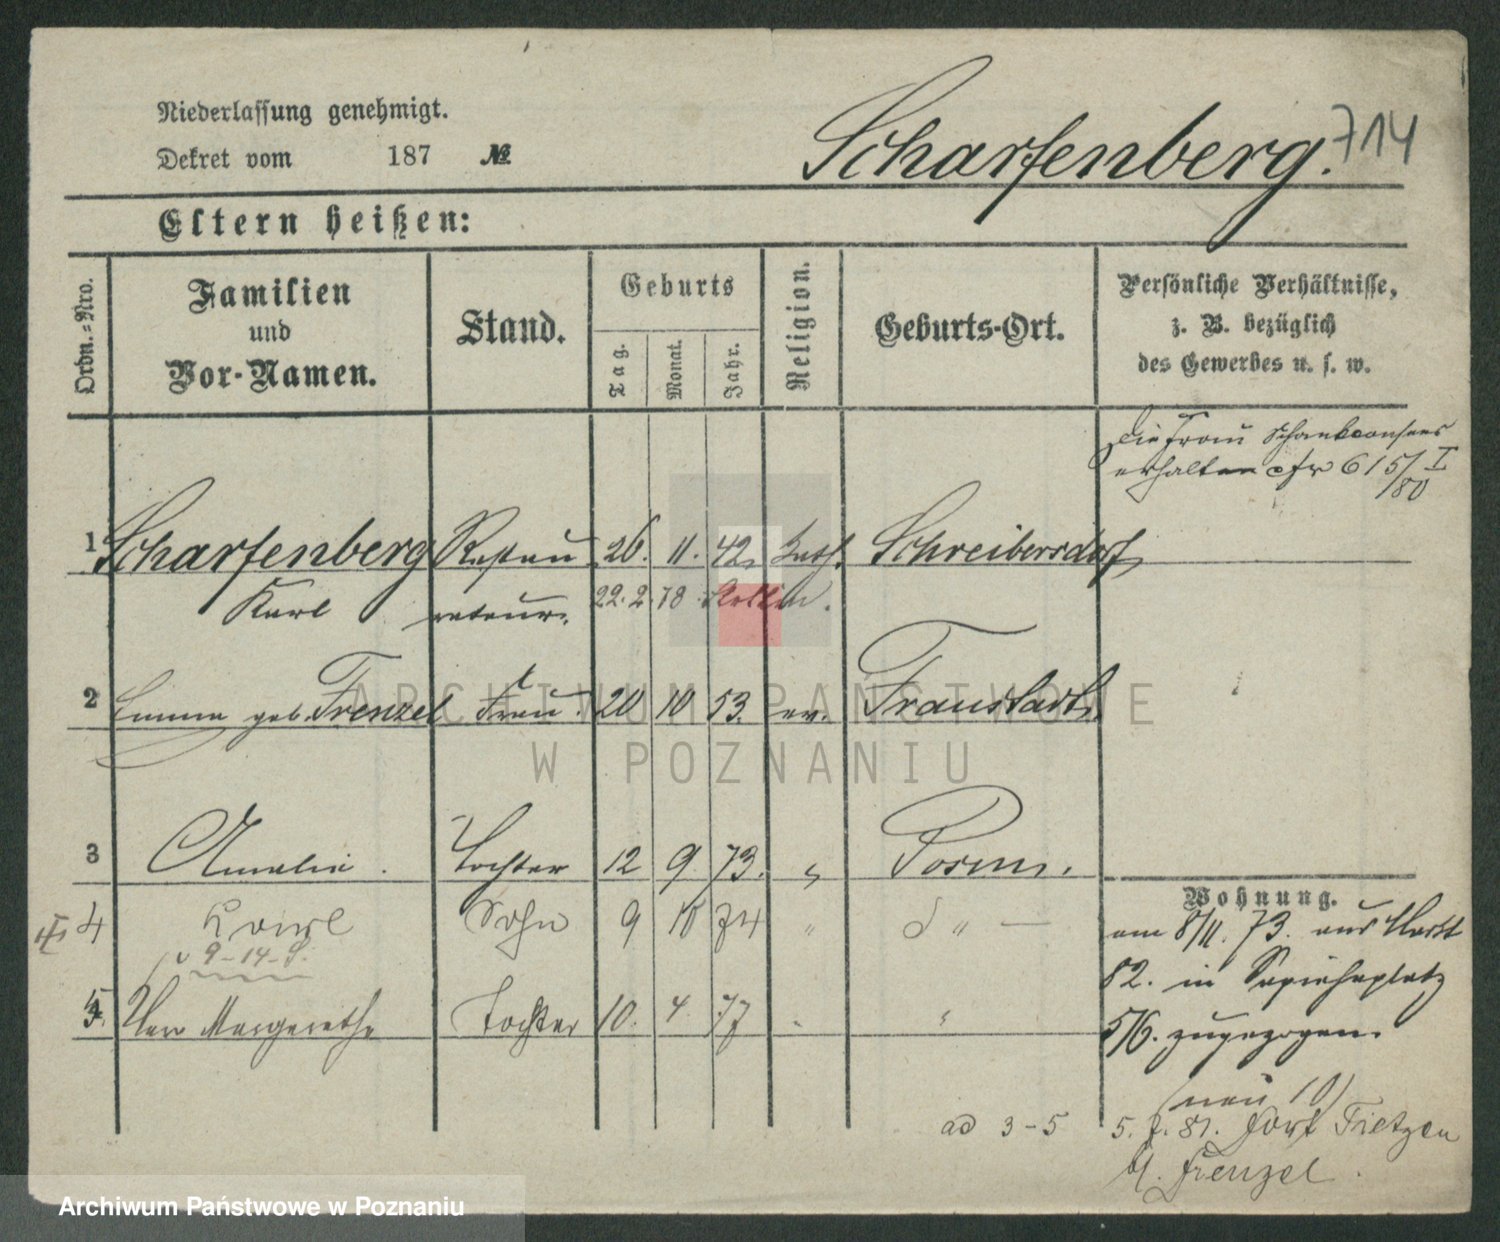 Niederlassung genehmigt.
Dekret vom 187 №
Scharfenberg. 714
Eltern heißen:
Ordn.-Nro.
Familien
und
Vor-Namen.
Stand.
Geburts
Tag.
Monat.
Jahr.
Religion.
Geburts-Ort.
Persönliche Verhältnisse,
z. B. bezüglich
des Gewerbes u. s. w.
Die Frau Schankconsens
erhalten cfr 615/I
/80
1 Scharfenberg Restau 26. 11. 42. kath. Schreibersdorf
Karl rateur. 22. 2. 78
2 Emma geb. Frenzel Frau. 20 10 53. ev. Fraustadt.
3 Amalie. Tochter 12 9 73. " Posen.
4 Karl Sohn 9 10 74 " d " —
9-14-
5. Margarethe Tochter 10. 4. 77 " "
Wohnung.
am 8/11. 73. aus Markt
82. in Sapiehaplatz
5/6. zugezogen.
(neu 10)
ad 3-5 5. 81. Dorf Tietzen
b/. Frenzel.
ARCHIWUM PAŃSTWOWE
W POZNANIU
Archiwum Państwowe w Poznaniu